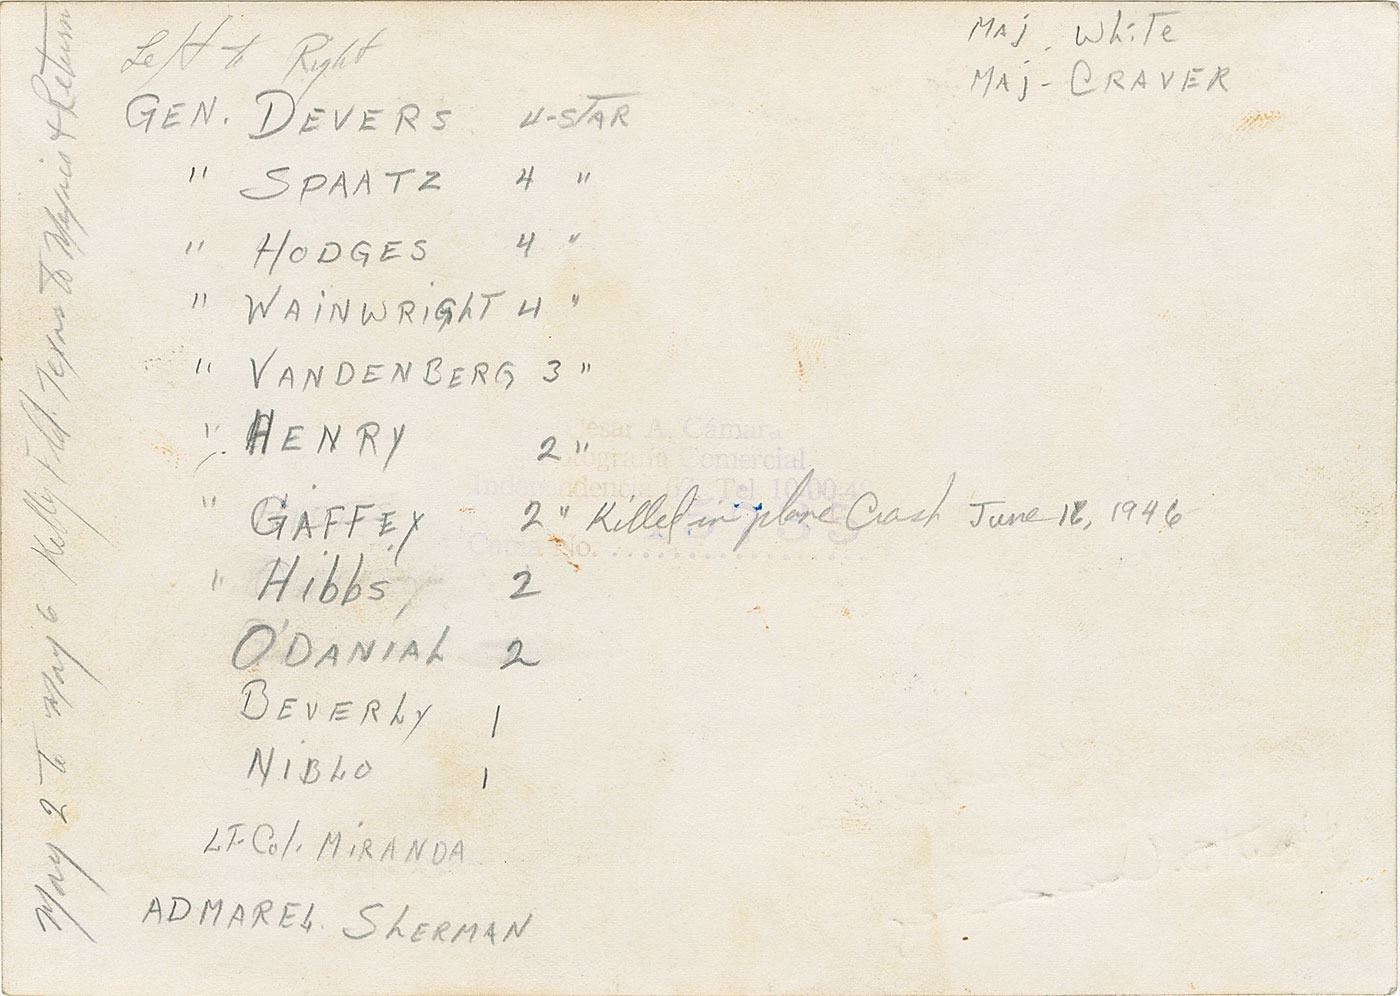 Left to Right
GEN. DEVERS 4-STAR
" SPAATZ 4 "
" HODGES 4 "
" WAINWRIGHT 4 "
" VANDENBERG 3 "
" HENRY 2 "
" GAFFEY 2 " Killed in plane Crash June 18, 1946
" Hibbs 2
O'DANIAL 2
BEVERLY 1
NIBLO 1
LT. Col. MIRANDA
ADMAREL. SHERMAN
MAJ. White
MAJ- CRAVER
May 2 to May 6 Kelly Field. Texas to Mexico & Return
esar A. Cámara
otografía Comercial
Independencia 67. Tel. 10-00-4
No.